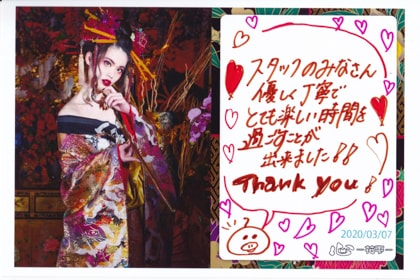 スタッフのみなさん
優しく丁寧で
とても楽しい時間を
過ごすことが
出来ました!!
Thank you!
2020/03/07